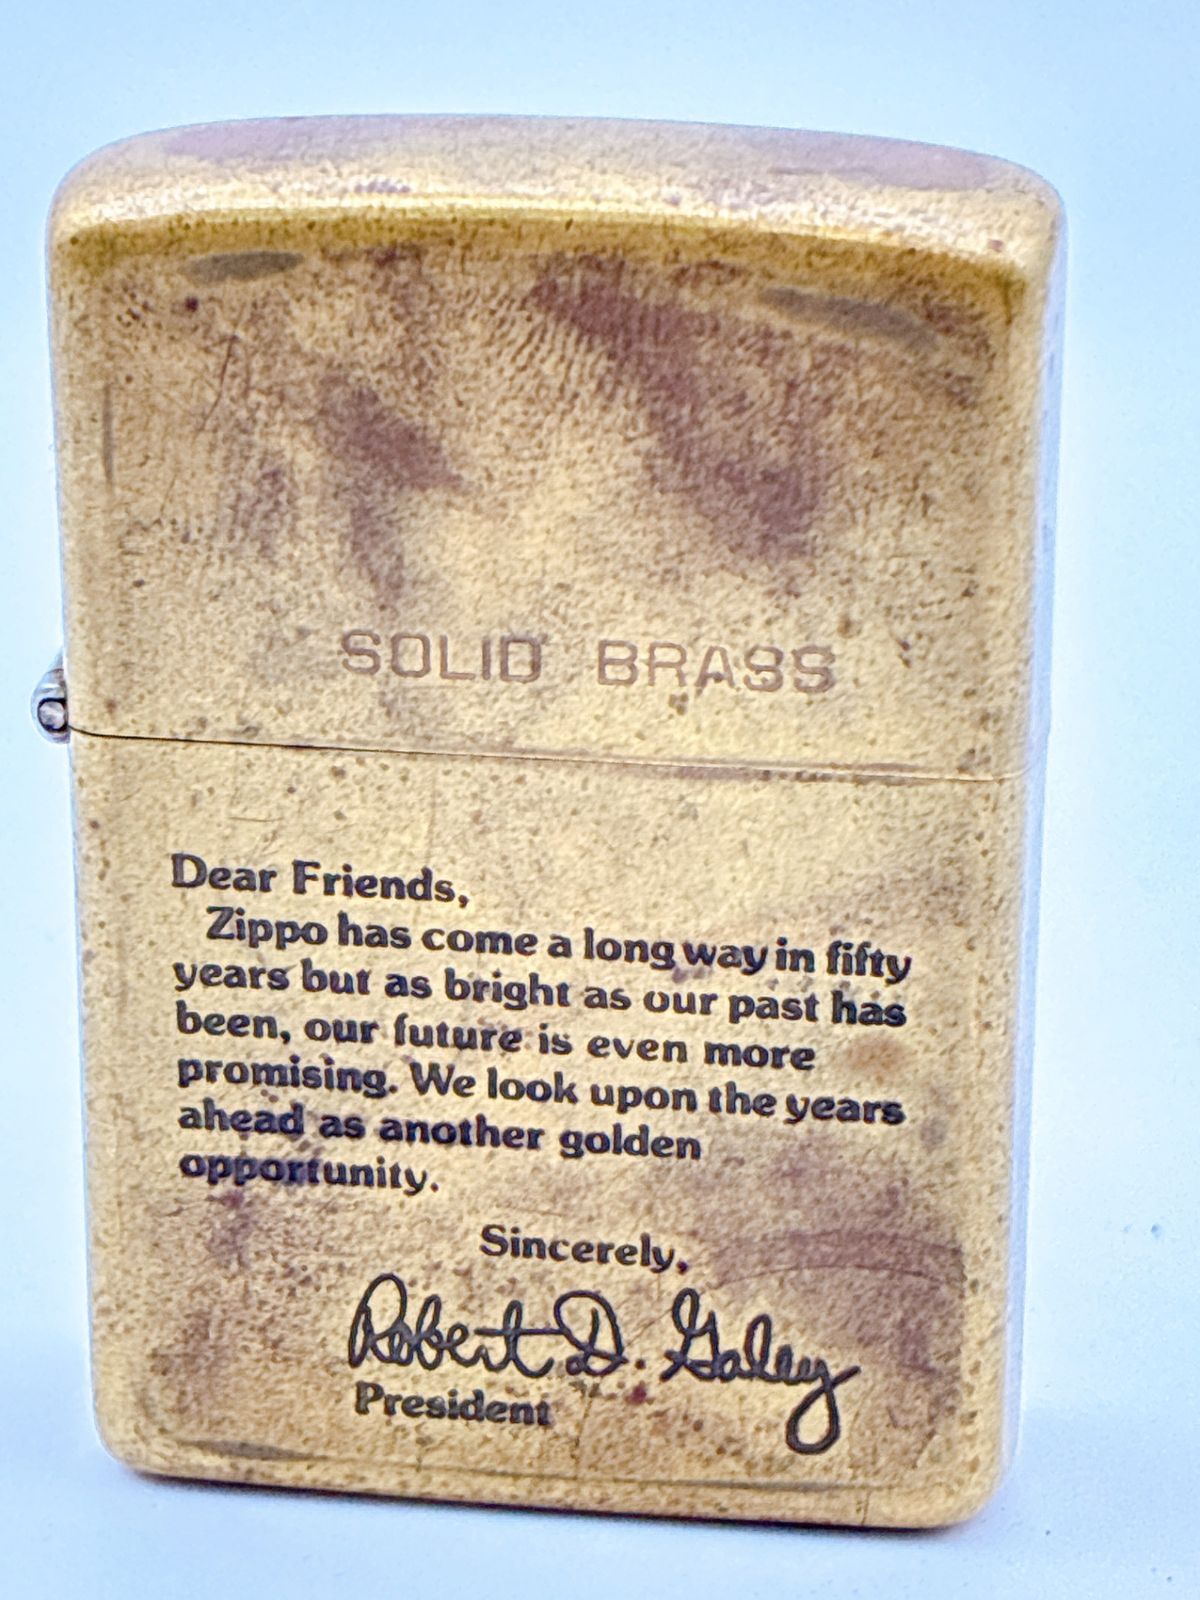 SOLID BRASS
Dear Friends,
Zippo has come a long way in fifty
years but as bright as our past has
been, our future is even more
promising. We look upon the years
ahead as another golden
opportunity.
Sincerely,
Robert D. Galey
President